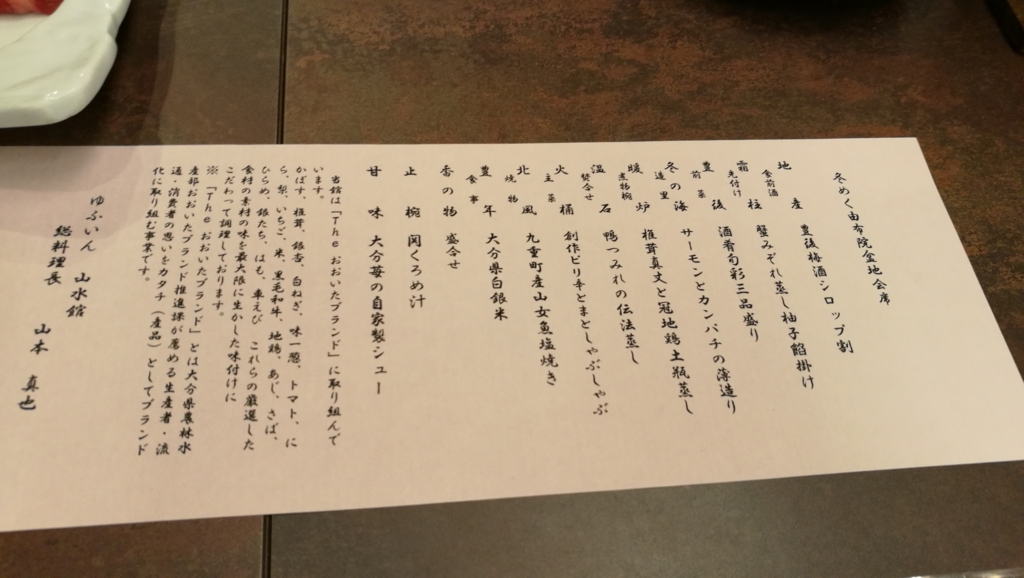 冬めく由布院盆地会席
地産 食前酒 豊後梅酒シロップ割
霜柱 先付け 蟹みぞれ蒸し柚子餡掛け
豊後 前菜 酒肴旬彩三品盛り
冬の海 造里 サーモンとカンパチの薄造り
暖炉 煮物椀 椎茸真丈と冠地鶏土瓶蒸し
温石 焚合せ 鴨つみれの伝法蒸し
火桶 主菜 創作ピリ辛とまとしゃぶしゃぶ
北風 焼物 九重町産山女魚塩焼き
豊年 食事 大分県白銀米
香の物 盛合せ
止椀 関くろめ汁
甘味 大分苺の自家製シュー
当館は「The おおいたブランド」に取り組んで
います。
かぼす、椎茸、銀杏、白ねぎ、味一葱、トマト、に
ら、梨、いちご、米、黒毛和牛、地鶏、あじ、さば、
ひらめ、銀たち、はも、車えび これらの厳選した
食材の素材の味を最大限に生かした味付けに
こだわって調理しております。
※「The おおいたブランド」とは大分県農林水
産部おおいたブランド推進課が薦める生産者・流
通・消費者の思いをカタチ（産品）としてブランド
化に取り組む事業です。
ゆふいん 山水館
総料理長 山本 真也